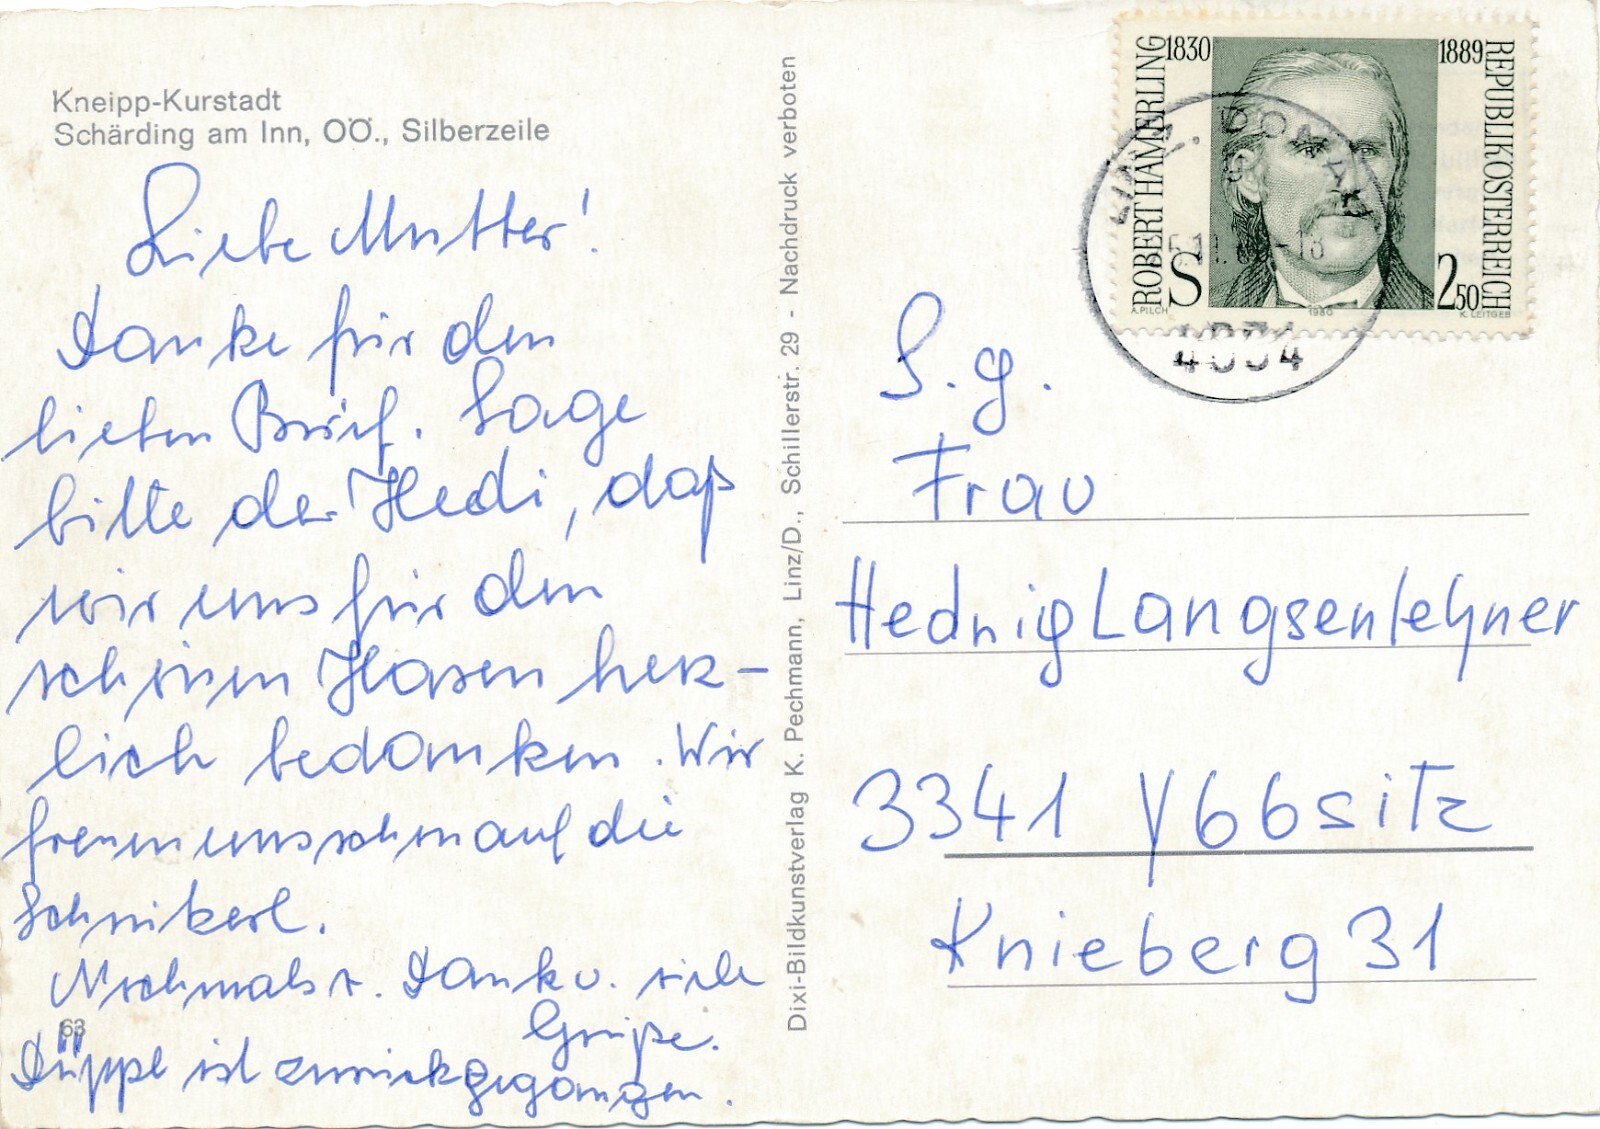 Kneipp-Kurstadt
Schärding am Inn, OÖ., Silberzeile
Liebe Mutter!
Danke für den
lieben Brief. Sage
bitte der Hedi, daß
wir uns für den
schönen Hasen herz-
lich bedanken. Wir
freuen uns schon auf die
Schnikerl.
Nochmals v. Dank u. viele
Grüße.
63
ist zurückgegangen.
Dixi-Bildkunstverlag K. Pechmann, Linz/D., Schillerstr. 29 - Nachdruck verboten
ROBERT HAMERLING
1830
1889
REPUBLIK ÖSTERREICH
S 2.50
A.PILCH
1980
K. LEITGEB
S.g.
Frau
Hedwig Langsenlehner
3341 Ybbsitz
Knieberg 31